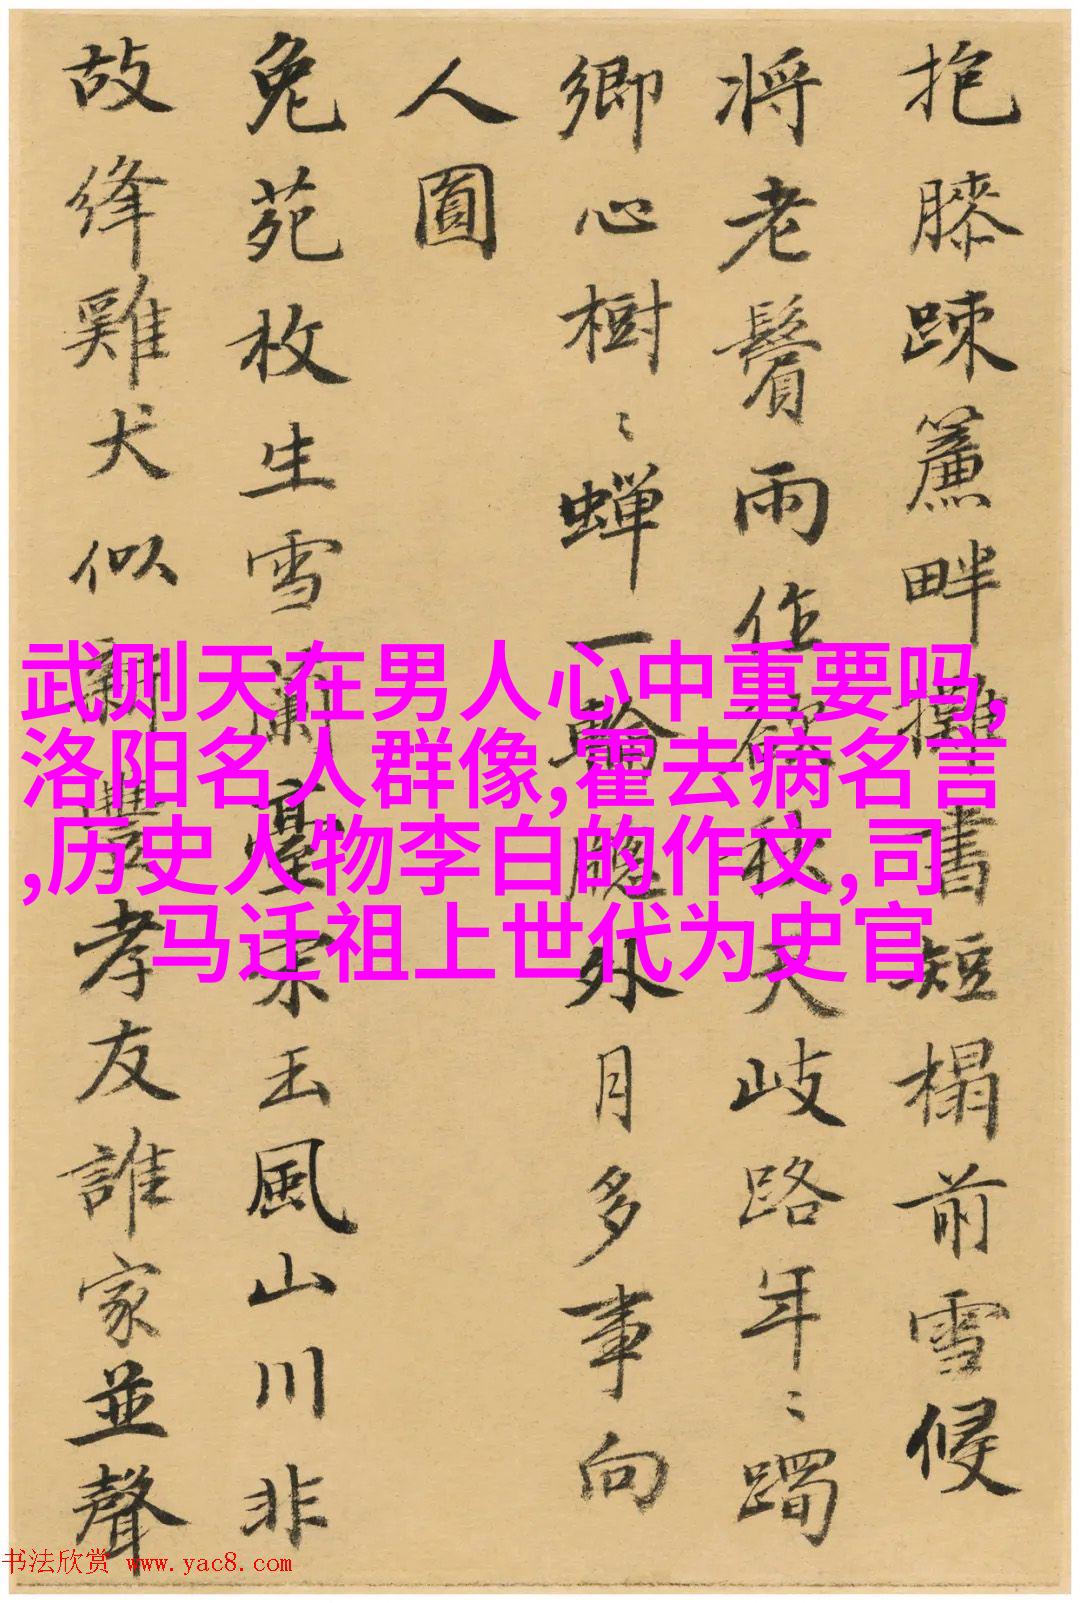 抱膝踈簾畔攤書短榻前雪侵
将老鬢雨作欲秋天歧路年々躅
鄉心樹々蟬一輪牕外月多事向
人圓
兔苑枚生雪蘭臺宋玉風山川非
故絳雞犬似新豐孝友誰家並聲
武则天在男人心中重要吗,
洛阳名人群像,霍去病名言
,历史人物李白的作文,司
马迁祖上世代为史官
书法欣赏 www.yac8.com